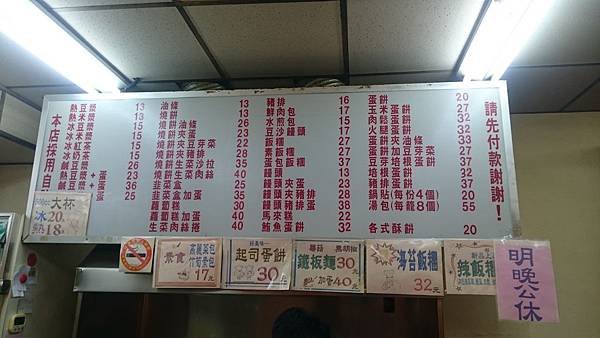 本店採用自
熱豆漿 13
熱米漿 13
冰豆漿 15
冰米漿 15
冰紅茶 15
冰奶茶
熱豆漿+蛋
鹹豆漿
鹹豆漿+蛋
油條 13
燒餅 13
燒餅油條 26
燒餅夾蛋 23
燒餅夾豆芽菜 22
燒餅夾豬排 28
燒餅生菜沙拉 35
燒餅生菜肉絲 40
韭菜盒 25
韭菜盒加蛋
蘿蔔糕
蘿蔔糕加蛋
生菜肉絲捲 40
豬排 16
鮮肉包 17
水煎包 15
豆沙饅頭 17
飯糰 27
素飯糰 27
蛋包飯糰 37
饅頭 13
饅頭夾蛋 23
饅頭夾豬排 28
饅頭豬排蛋 38
馬來糕 22
鮪魚蛋餅 32
蛋餅 20
玉米蛋餅 27
肉鬆蛋餅 32
火腿蛋餅 32
蛋餅夾油條 33
蛋餅加豆芽菜 27
豆芽培根蛋餅 37
培根蛋餅 32
豬排蛋餅 37
鍋貼(每份4個) 20
湯包(每籠8個) 55
各式酥餅 20
請先付款謝謝!
大杯
冰20元
熱18元
素食
高麗菜包
竹筍素包
17元
起司蛋餅
30元
蘑菇 黑胡椒
鐵板麵30元
加蛋40元
海苔飯糰
32元
辣飯糰
明晚公休